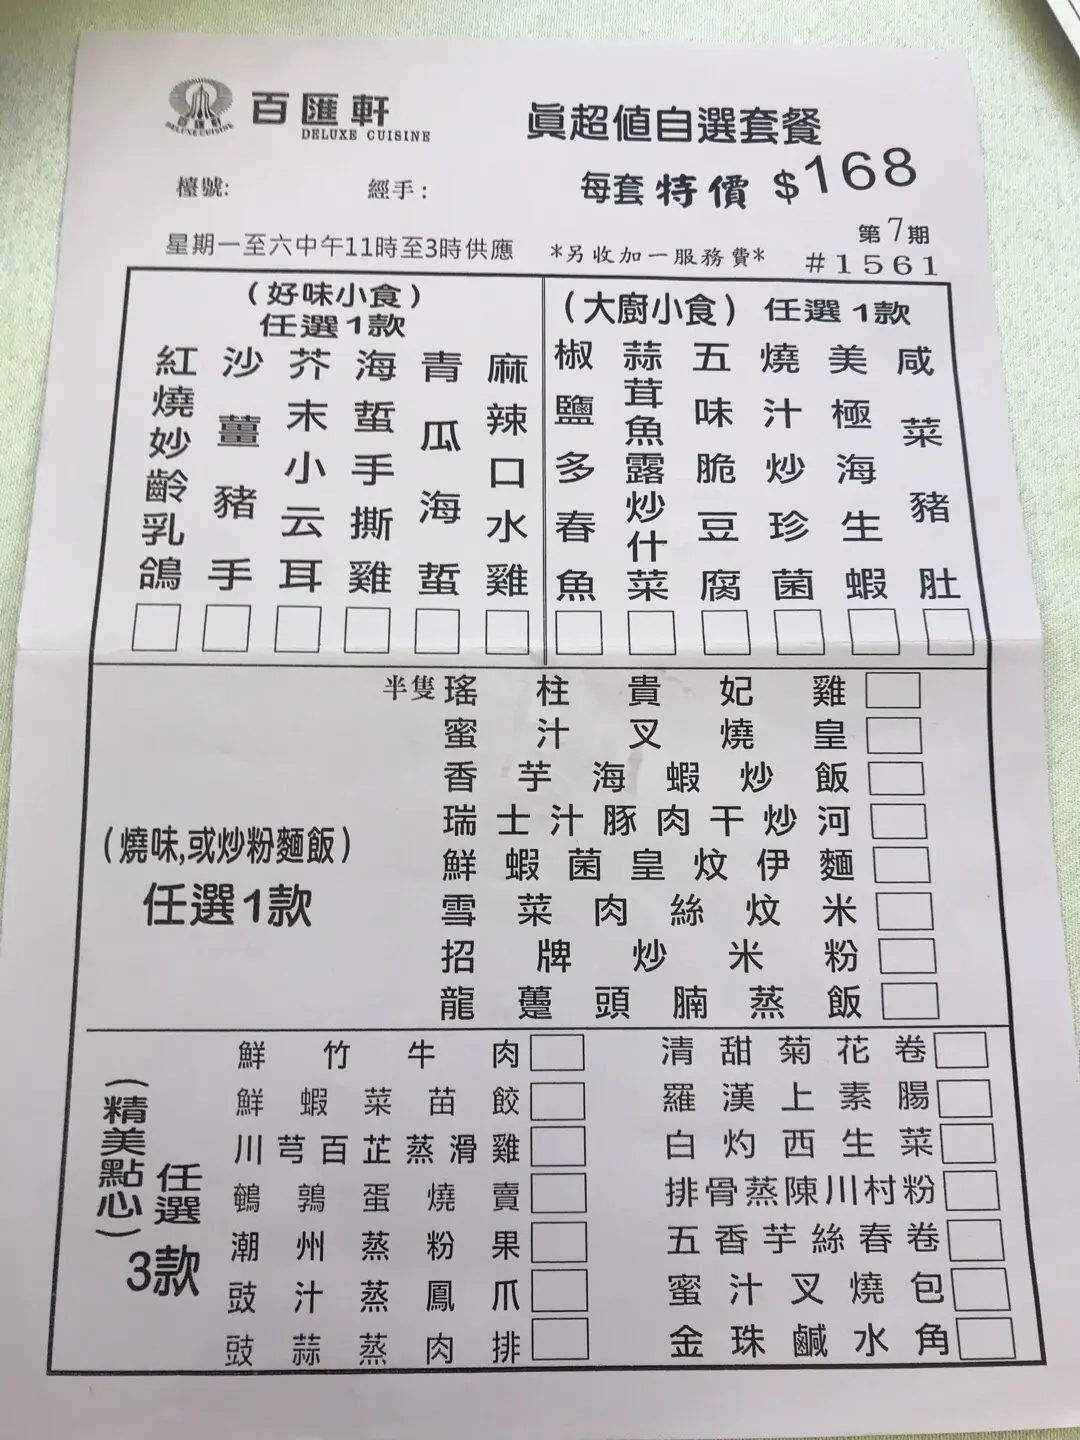 百匯軒
DELUXE CUISINE
百匯軒
DELUXE CUISINE
眞超值自選套餐
每套特價 $168
檯號:
經手:
第7期
星期一至六中午11時至3時供應
*另收加一服務費*
#1561
(好味小食)
任選1款
紅燒妙齡乳鴿
沙薑豬手
芥末小云耳
海蜇手撕雞
青瓜海蜇
麻辣口水雞
(大廚小食) 任選1款
椒鹽多春魚
蒜茸魚露炒什菜
五味脆豆腐
燒汁炒珍菌
美極海生蝦
咸菜豬肚
(燒味,或炒粉麵飯)
任選1款
半隻瑤柱貴妃雞
蜜汁叉燒皇
香芋海蝦炒飯
瑞士汁豚肉干炒河
鮮蝦菌皇炆伊麵
雪菜肉絲炆米
招牌炒米粉
龍躉頭腩蒸飯
(精美點心)
任選
3款
鮮竹牛肉
鮮蝦菜苗餃
川芎百芷蒸滑雞
鵪鶉蛋燒賣
潮州蒸粉果
豉汁蒸鳳爪
豉蒜蒸肉排
清甜菊花卷
羅漢上素腸
白灼西生菜
排骨蒸陳川村粉
五香芋絲春卷
蜜汁叉燒包
金珠鹹水角